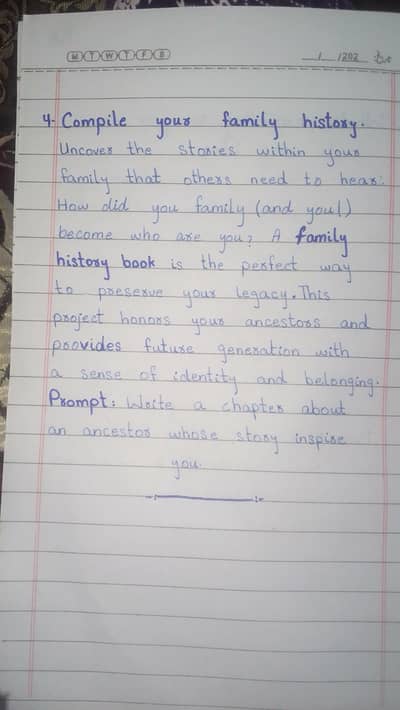 M T W T F S
/ /202
4- Compile your family history.
Uncover the stories within your
family that others need to hear.
How did you family (and you!)
become who are you? A family
history book is the perfect way
to preserve your legacy. This
project honors your ancestors and
provides future generation with
a sense of identity and belonging.
Prompt: Write a chapter about
an ancestor whose story inspire
you.